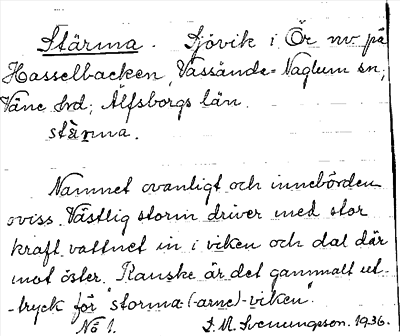 Stärma. Sjövik i Ör nv på
Hasselbacken, Vassända-Naglum sn;
Väne hrd; Älfsborgs län.
stä̀rma.
Namnet ovanligt och innebörden
oviss. Västlig storm driver med stor
kraft vattnet in i viken och dal där
mot öster. Kanske är det gammalt ut-
-tryck för "storma(-arne)-viken".
No 1. S. M. Svenungsson. 1936.